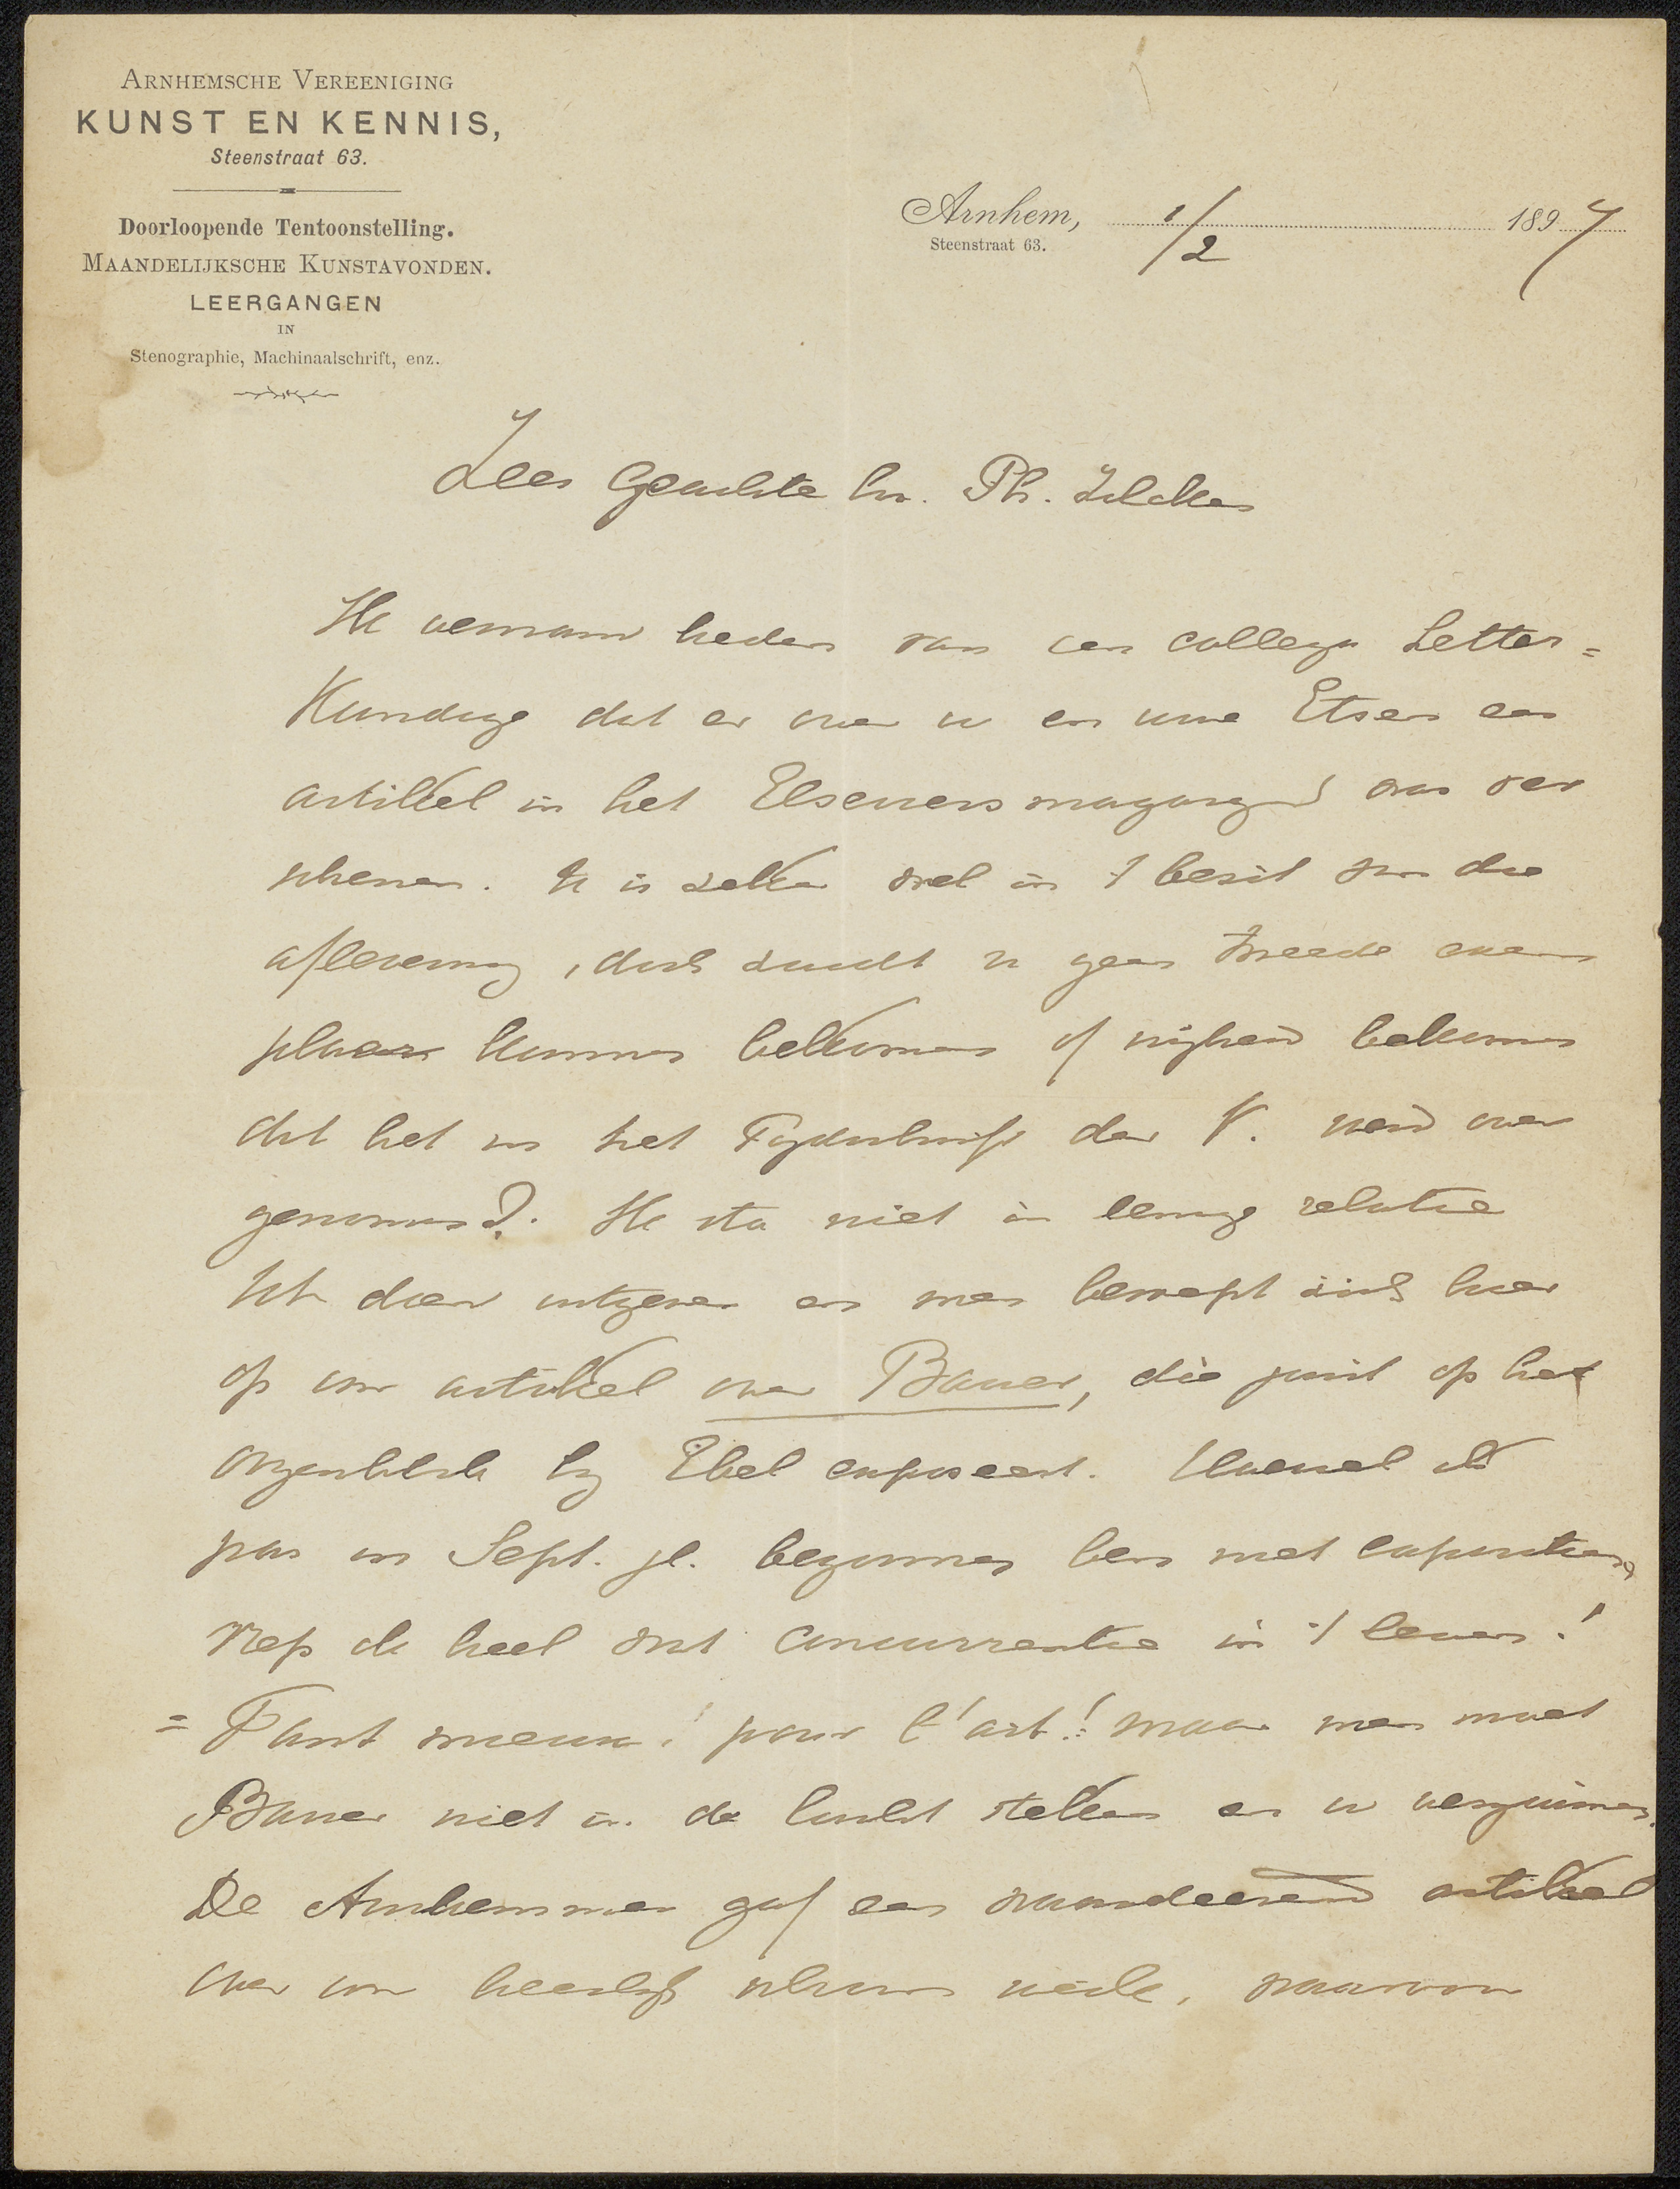 ARNHEMSCHE VEREENIGING
KUNST EN KENNIS,
Steenstraat 63.
Doorloopende Tentoonstelling.
MAANDELIJKSCHE KUNSTAVONDEN.
LEERGANGEN
IN
Stenographie, Machinaalschrift, enz.
Arnhem, 1/2 1897
Steenstraat 63.
Zeer Geachte hr. Ph. Zilcken
Ik vernam heden van een collega Letter=
Kundige dat er over u en uwe Etsen een
artikel in het Elseviers magazijn was ver
schenen. U is zeker wel in 't bezit van die
aflevering, doch zoudt u geen tweede exem
plaar kunnen bekomen of vrijheid bekomen
dat het in het Tijdschrift der V. werd over
genomen? Ik sta niet in eenige relatie
tot dien uitgever en men beroept zich hier
op uw artikel over Bauer, die juist op het
oogenblik bij Ebel exposeert. Hoewel ik
pas in Sept. jl. begonnen ben met exposities,
riep ik heel wat concurrentie in 't leven!
= Tant mieux! pour l'art! maar men moet
Bauer niet in de lucht steken en u verzuimen.
De Arnhemmer gaf een waardeerend artikel
over uw heerlijk schoon werk, waarvan